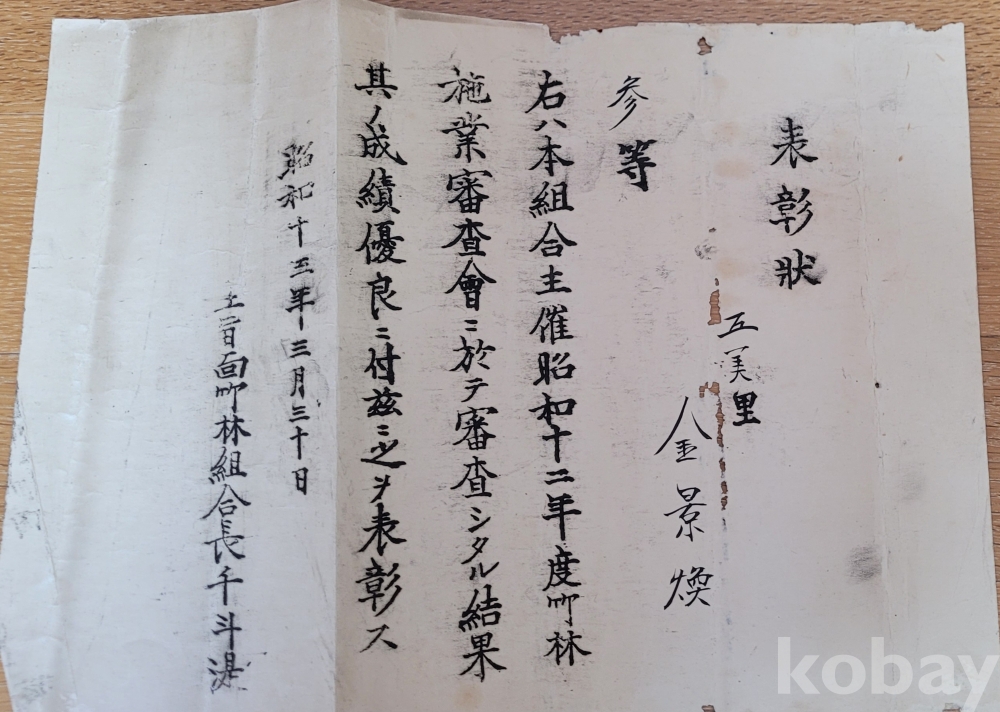 表彰状
五美里
金景煥
参等
右ハ本組合主催昭和十二年度叩林
施業審査會ニ於テ審査シタル結果
其ノ成績優良ニ付玆ニ之ヲ表彰ス
昭和十三年三月三十日
面叩林組合長千斗湜
kobay